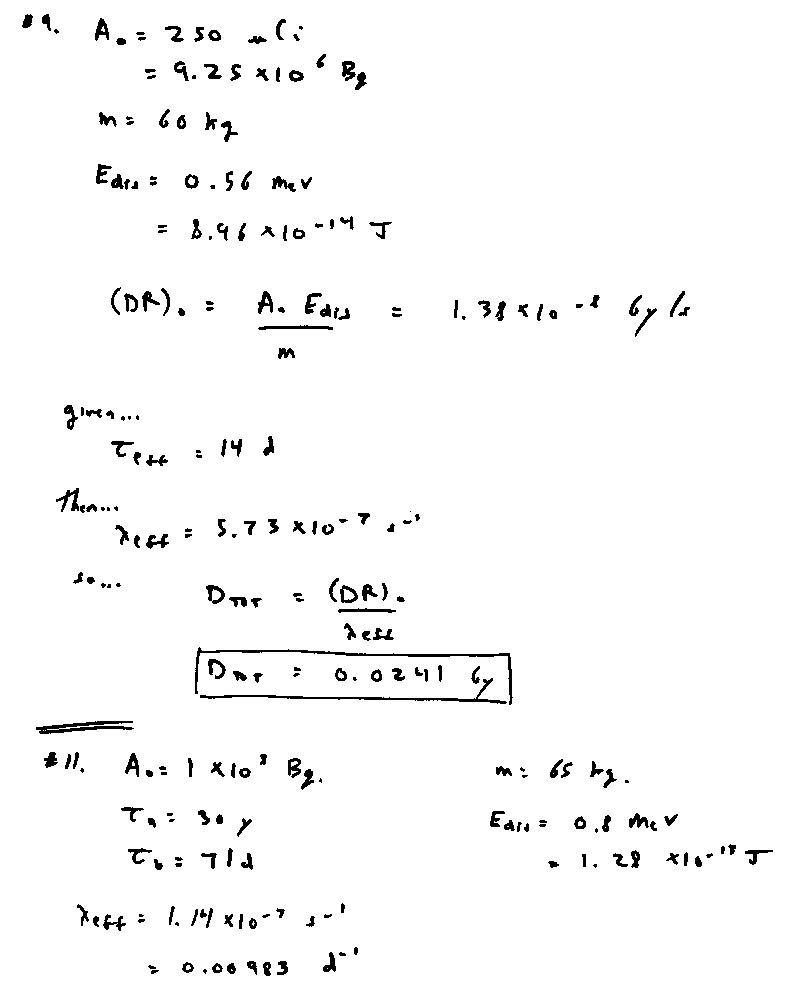 #9. A₀ = 250 μCi
= 9.25 × 10⁶ Bq
m = 60 kg
E_dis = 0.56 MeV
= 8.96 × 10⁻¹⁴ J
(DR)₀ = A₀ E_dis / m = 1.38 × 10⁻⁸ Gy/s
given...
τ_eff = 14 d
then...
λ_eff = 5.73 × 10⁻⁷ s⁻¹
so...
D_TOT = (DR)₀ / λ_eff
D_TOT = 0.0241 Gy
#11. A₀ = 1 × 10⁸ Bq. m = 65 kg.
τ_r = 30 y E_dis = 0.8 MeV
τ_b = 71d = 1.28 × 10⁻¹³ J
λ_eff = 1.14 × 10⁻⁷ s⁻¹
= 0.00983 d⁻¹